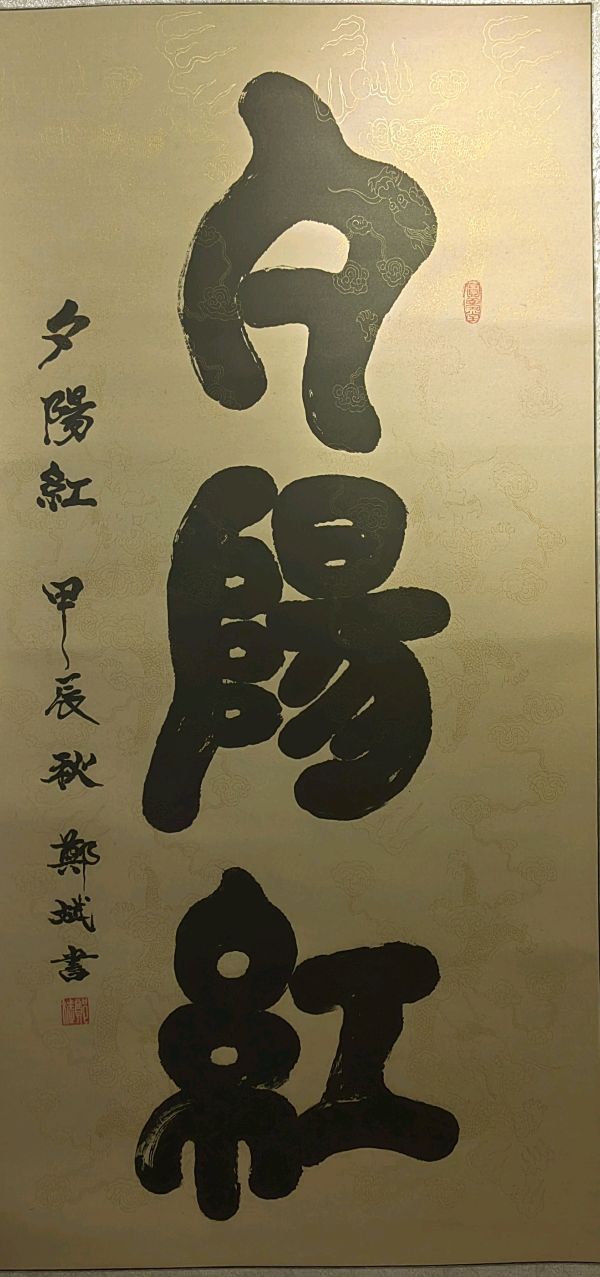 夕陽紅
夕陽紅 甲辰秋 鄭斌書